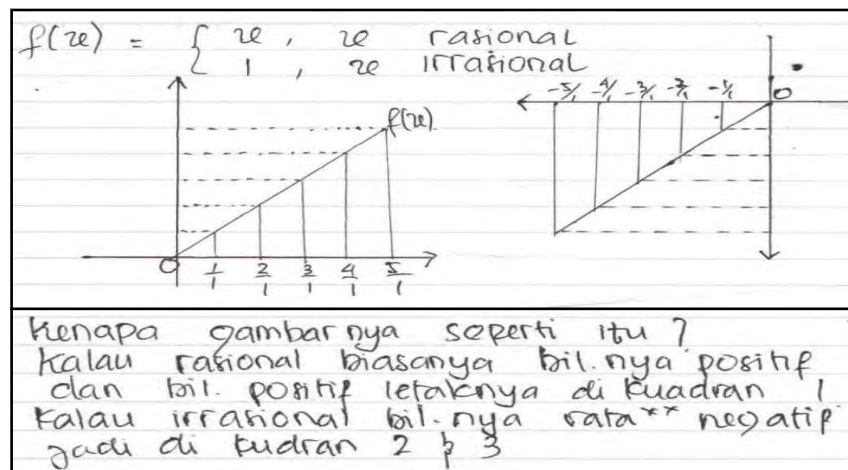 f(x) = { x , x rasional
1 , x irrasional
f(x)
0 1/1 2/1 3/1 4/1 5/1
-5/1 -4/1 -3/1 -2/1 -1/1 0
Kenapa gambarnya seperti itu ?
Kalau rasional biasanya bil.nya positif
dan bil. positif letaknya di kuadran 1
Kalau irrasional bil.nya rata** negatif
jadi di kudran 2 & 3